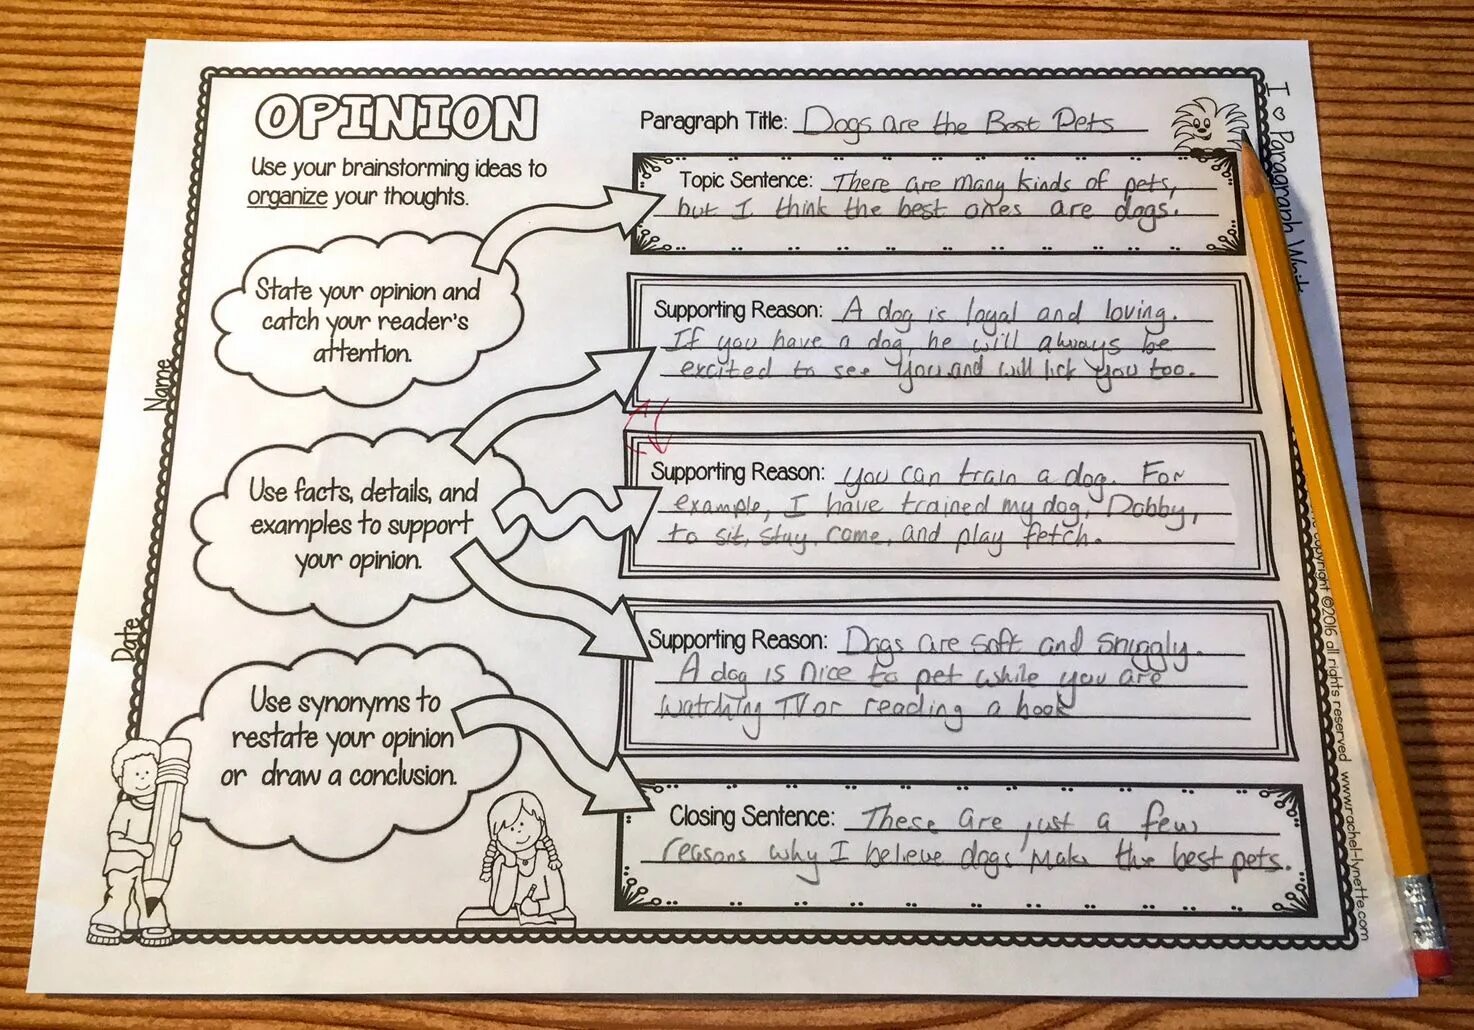 OPINION
Use your brainstorming ideas to
organize your thoughts.
State your opinion and
catch your reader's
attention.
Use facts, details, and
examples to support
your opinion.
Use synonyms to
restate your opinion
or draw a conclusion.
Name
Date
Paragraph Title: Dogs are the Best Pets
Topic Sentence: There are many kinds of pets,
but I think the best ones are dogs.
Supporting Reason: A dog is loyal and loving.
If you have a dog, he will always be
excited to see you and will lick you too.
Supporting Reason: You can train a dog. For
example, I have trained my dog, Dobby,
to sit, stay, come, and play fetch.
Supporting Reason: Dogs are soft and snuggly.
A dog is nice to pet while you are
watching TV or reading a book
Closing Sentence: These are just a few
reasons why I believe dogs make the best pets.
I ♡ Paragraph
copyright ©2016 all rights reserved www.rachel-lynette.com